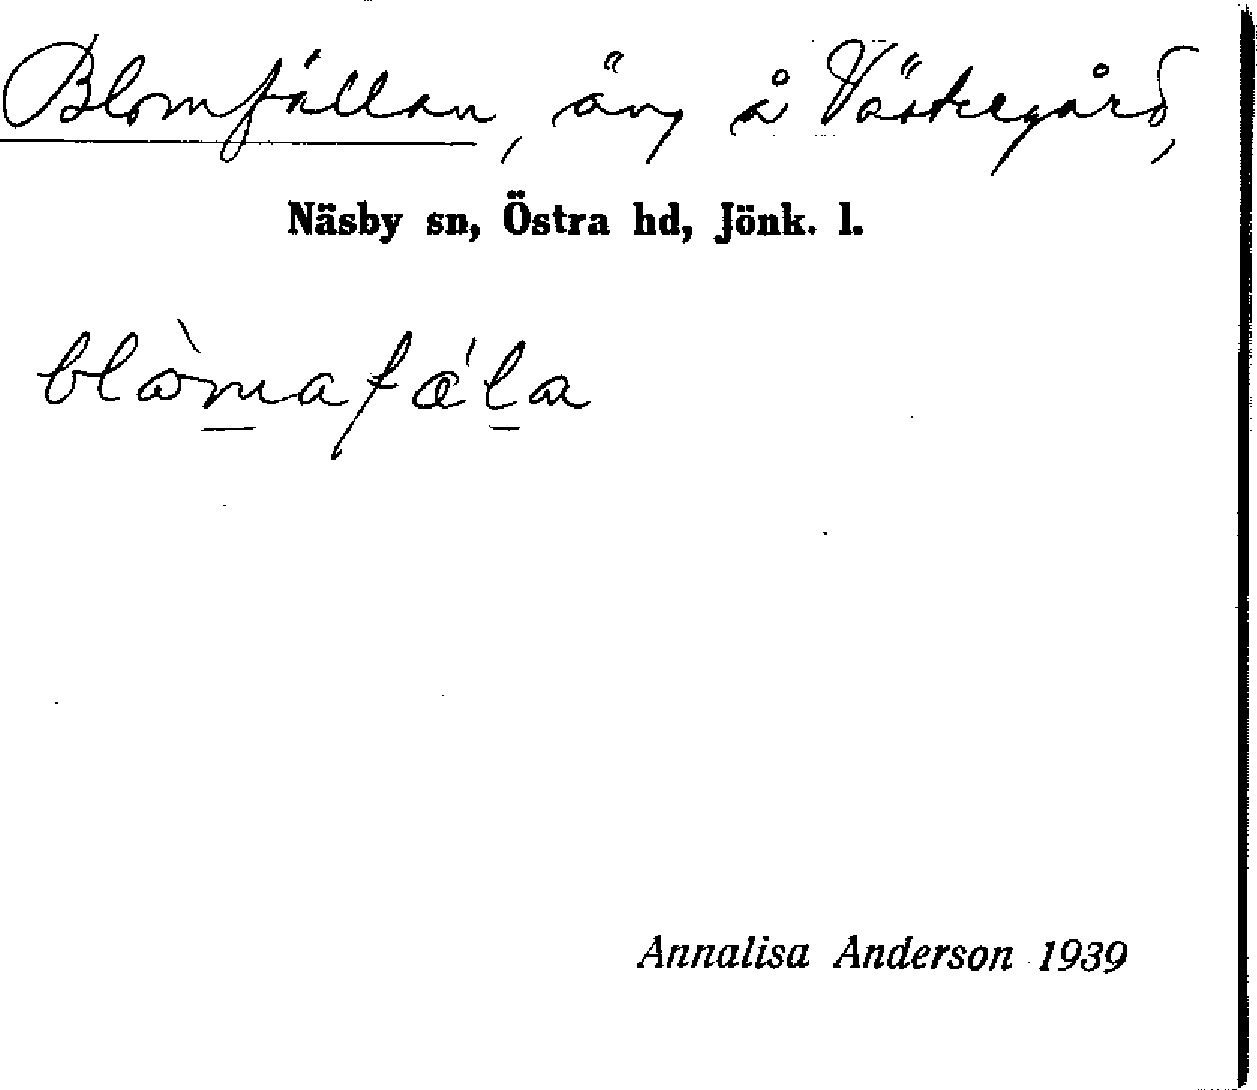 Blomfällan, äng å Västergård,
Näsby sn, Östra hd, Jönk. l.
blòmafǽla
Annalisa Anderson 1939